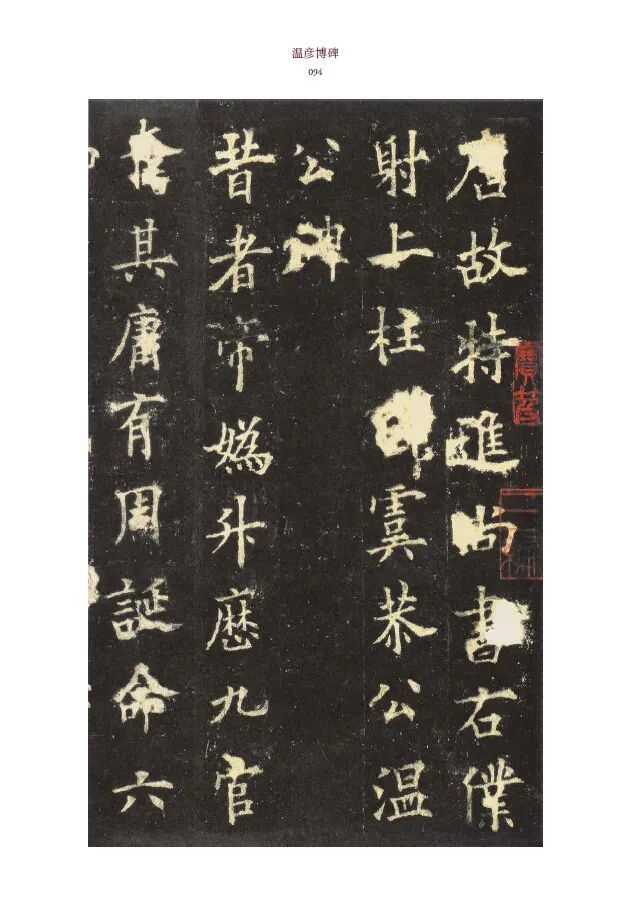 温彦博碑
094
唐故特進尚書右僕
射上柱虞恭公温
公碑
昔者帝媯升歷九官
其庸有周誕命六